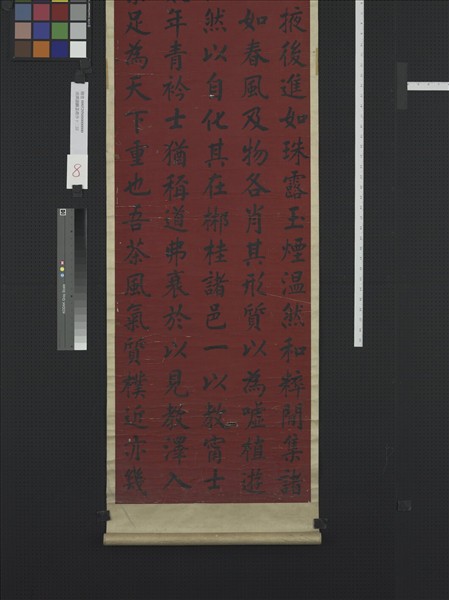 掖後進如珠露玉煙温然和粹間集諸
如春風及物各肖其形質以為噓植遊
然以自化其在郴桂諸邑一以教甯士
年青衿士猶稱道弗衰於以見教澤入
足為天下重也吾茶風氣質樸近亦幾
8